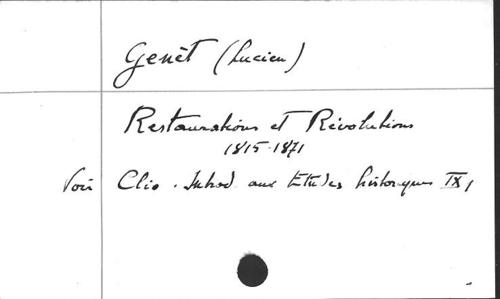 Genêt (Lucien)
Restaurations et Révolutions
1815-1871
Voir Clio. Introd aux Etudes historiques IX,